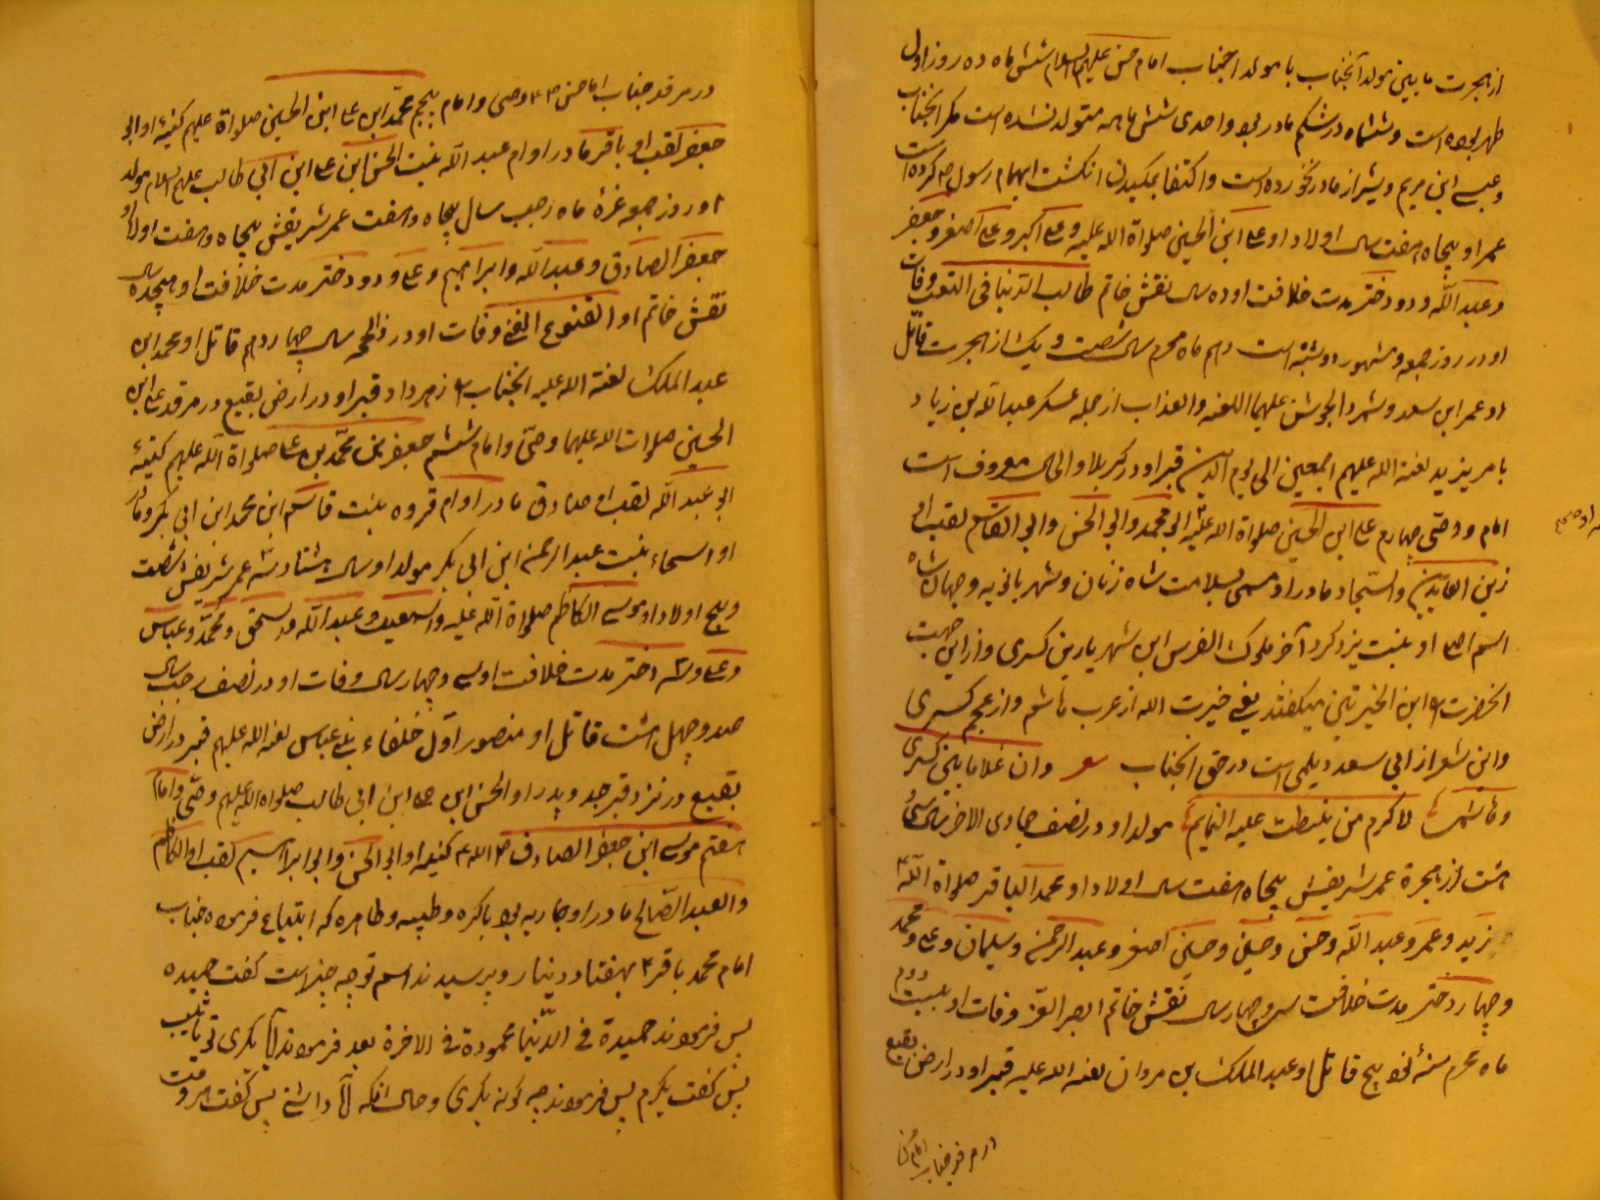 از هجرت ما بین مولد آنجناب با مولد اجناب امام حسن علیهم السلام شش ماه ده روز اول
طهر بوده است و ششماه در شکم مادر بود واحدی شش ماهه متولد نشده است مکر انجناب
و عیسے ابن مریم و شیر از مادر نخورده است و اکتفا بمکیدن انکشت ابهام رسول ص کرده است
عمر او پنجاه هفت سال اولاد او علے ابن الحسین صلواة الله علیه و علے اکبر و علے اصغر و جعفر
و عبد الله و دو دختر مدت خلافت او ده سال نقش خاتم طالب الدنیا فی التعب وفات
او در روز جمعه و مشهور دوشنبه است دهم ماه محرم سال شصت و یک از هجرت قاتل
او عمر ابن سعد و شمر ذالجوشن علیهما اللعنه والعذاب از جمله عسکر عبد الله بن زیاد
بامر یزید لعنة الله علیهم اجمعین الی یوم الدین قبر او در کربلا والحال معروف است
امام و وصی چهارم علے ابن الحسین صلواة الله علیه ابی محمد و ابی الحسن و ابی القاسم لقب او
زین العابدین والسجاد مادر او مسمی بسلامت شاه زنان و شهر بانویه و جهان شاه
اسم اصل او بنت یزدکرد آخر ملوک الفرس ابن شهریار بن کسری و از این جهت
انحضرت را ابن الخیرتین میکفتند یعنے خیرت الله از عرب هاشم و از عجم کسری
و این شعر از ابی سعد دیلمی است در حق انجناب شعر وان غلاما بین کسری
و هاشم لاکرم من نیطت علیه التمایم مولد او در نصف جمادی الاخر سال سی
هشت از هجرة عمر شریفش پنجاه هفت سال اولاد او محمد الباقر صلواة الله
زید و عمر و عبد الله و حسن و حسین و حسین اصغر و عبد الرحمن و سلیمان و علے و محمد
و چهار دختر مدت خلافت سی و چهار سال نقش خاتم وفات او بیست دوم
ماه محرم سنهٔ نود پنج قاتل او عبد الملک بن مروان لعنه الله علیه قبر او در ارض بقیع
در مرقد جناب امام حسن
در مرقد جناب امام حسن ع وصی و امام پنجم محمد ابن علے ابن الحسین صلواة علیهم کنیهٔ او ابی
جعفر لقب او باقر مادر او ام عبد الله بنت الحسن ابن علے ابن ابی طالب علیهم السلام مولد
او روز جمعه غرهٔ ماه رجب سال پنجاه و هفت عمر شریفش پنجاه و هفت اولاد او
جعفر الصادق و عبد الله و ابراهیم و علے و دو دختر مدت خلافت او هیجده سال
نقش خاتم او القنوع الغنے وفات او در ذالحجه سال چهاردهم قاتل او محمد ابن
عبد الملک لعنة الله علیه انجناب را زهر داد قبر او در ارض بقیع در مرقد علے ابن
الحسین صلوات الله علیهما وصی و امام ششم جعفر بن محمد بن علے صلواة الله علیهم کنیهٔ
ابو عبد الله لقب او صادق مادر او ام فروه بنت قاسم ابن محمد ابن ابی بکر و مادر
او اسماء بنت عبد الرحمن ابن ابی بکر مولد او سال هشتاد و سه عمر شریفش شصت
و پنج اولاد او موسے الکاظم صلواة الله علیه و اسمعیل و عبد الله و اسحق و محمد و عباس
و علے و سه دختر مدت خلافت او سی و چهار سال وفات او در نصف رجب سال
صد و چهل هشت قاتل او منصور اول خلفاء بنے عباس لعنه الله علیهم قبر در ارض
بقیع در نزد قبر جد و پدر او الحسن ابن علے ابن ابی طالب صلواة الله علیهم وصی و امام
هفتم موسے ابن جعفر الصادق کنیه او ابی الحسن و ابی ابراهیم لقب او الکاظم
والعبد الصالح مادر او جاریه بود باکره و طیبه و طاهره که ابتیاع فرموده جناب
امام محمد باقر ع بهفتاد دینار و پرسیدند اسم تو چه چیز است کفت حمیده
پس فرمودند حمیدة فی الدنیا محمودة فی الاخرة بعد فرمودند بکری تو یا ثیب
پس کفت بکرم پس فرمودند چه کونه بکری و حال انکه پس کفت هر وقت